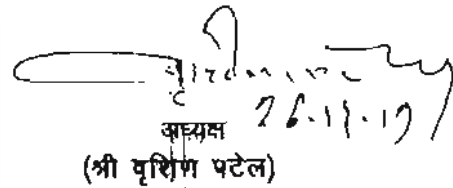 26.11.19
अध्यक्ष
(श्री वृशिण पटेल)